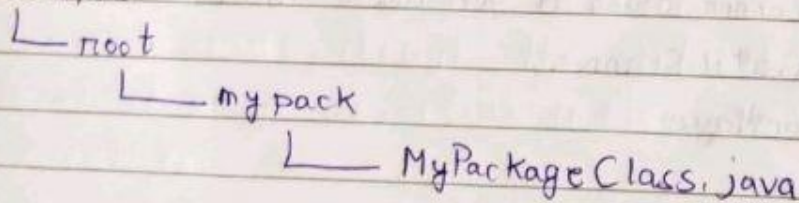 root
mypack
MyPackageClass.java